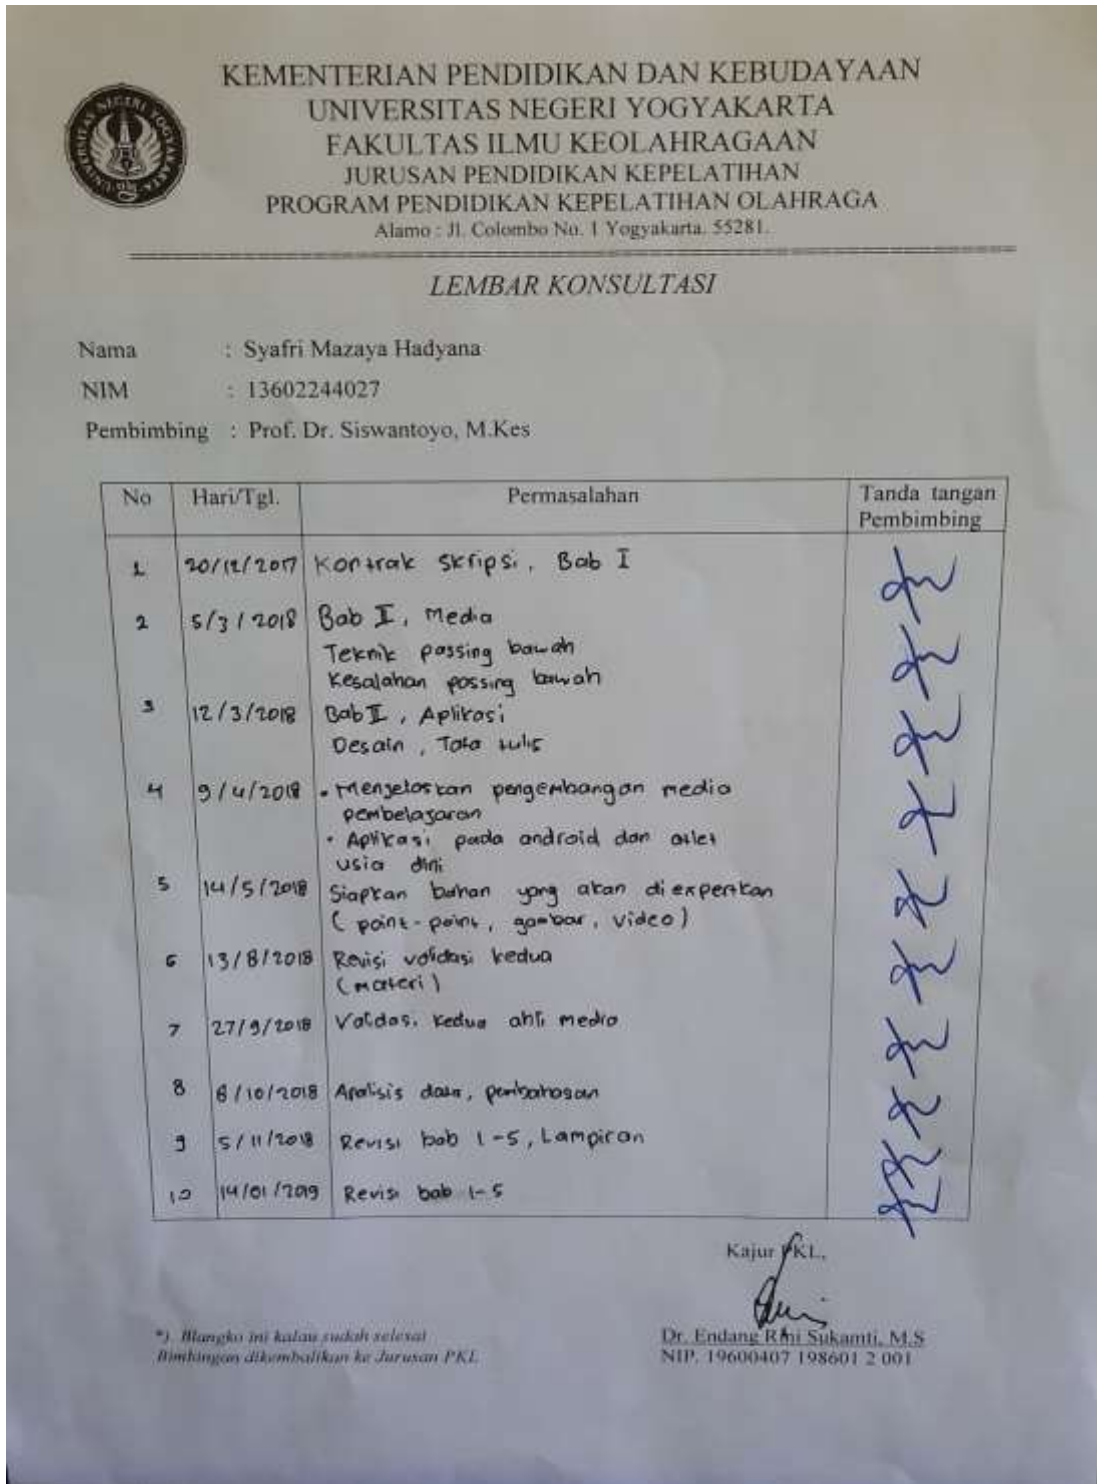 KEMENTERIAN PENDIDIKAN DAN KEBUDAYAAN
UNIVERSITAS NEGERI YOGYAKARTA
FAKULTAS ILMU KEOLAHRAGAAN
JURUSAN PENDIDIKAN KEPELATIHAN
PROGRAM PENDIDIKAN KEPELATIHAN OLAHRAGA
Alamo : Jl. Colombo No. 1 Yogyakarta. 55281.
UNIVERSITAS NEGERI YOGYAKARTA
LEMBAR KONSULTASI
Nama : Syafri Mazaya Hadyana
NIM : 13602244027
Pembimbing : Prof. Dr. Siswantoyo, M.Kes
No Hari/Tgl. Permasalahan Tanda tangan
Pembimbing
1 20/12/2017 Kontrak skripsi, Bab I
2 5/3/2018 Bab II, Media
Teknik passing bawah
Kesalahan passing bawah
3 12/3/2018 Bab II, Aplikasi
Desain, Tata tulis
4 9/4/2018 • Menjelaskan pengembangan media
pembelajaran
• Aplikasi pada android dan atlet
usia dini
5 14/5/2018 Siapkan bahan yang akan diexpertkan
(point-point, gambar, video)
6 13/8/2018 Revisi validasi kedua
(materi)
7 27/9/2018 Validasi kedua ahli media
8 8/10/2018 Analisis data, pembahasan
9 5/11/2018 Revisi bab 1-5, Lampiran
10 14/01/2019 Revisi bab 1-5
Kajur PKL,
*). Blangko ini kalau sudah selesai
Bimbingan dikembalikan ke Jurusan PKL
Dr. Endang Rini Sukamti, M.S
NIP. 19600407 198601 2 001